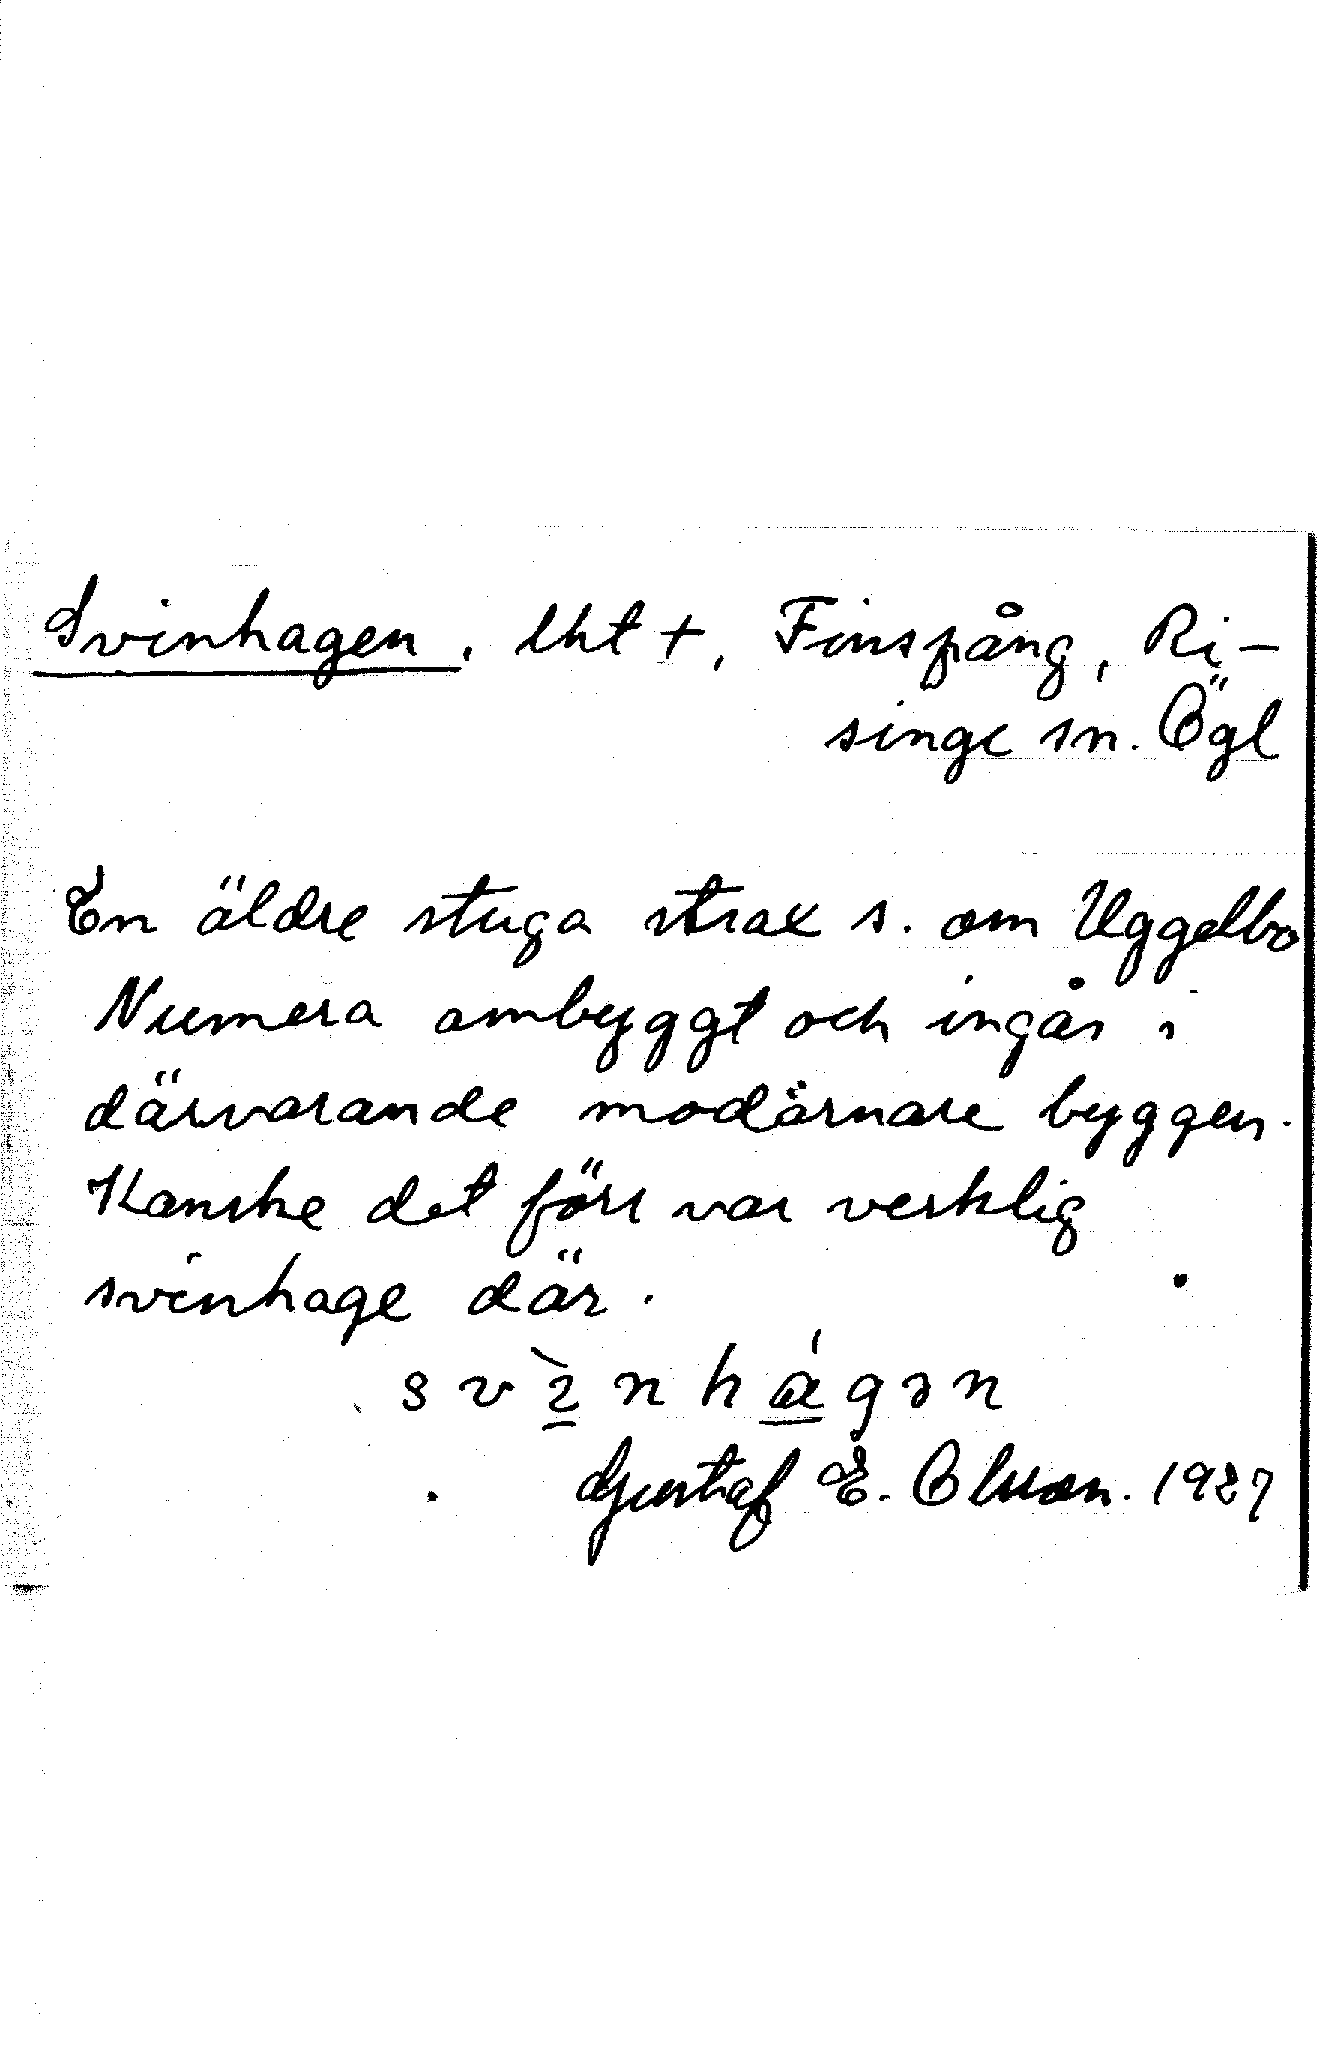 Svinhagen, lht +, Finspång, Ri-
singe sn. Ögl
En äldre stuga strax s. om Uggelbo
Numera ombyggt och ingår i
därvarande modärnare byggen.
Kanske det förr var verklig
svinhage där.
svìnhágən
Gustaf E. Olsson. 1927